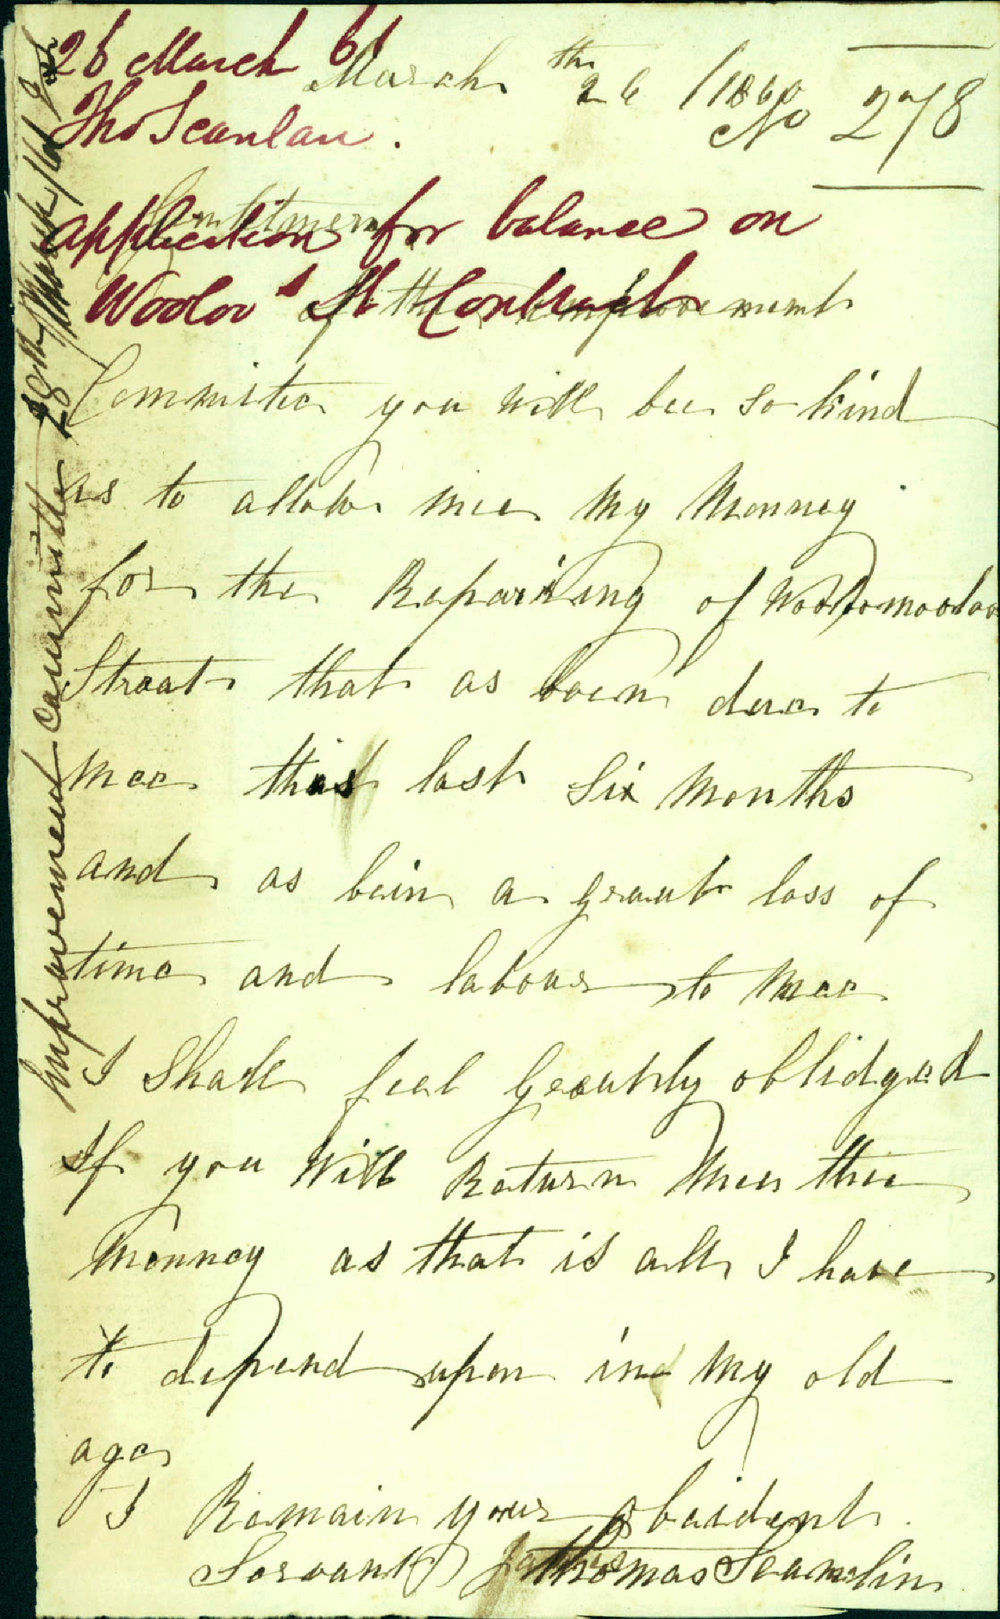 26 March 61
March th 26 / 1860
No 278
Tho Scanlan.
application for balance on
Gentlemen
Wooloo St Contract
of the improovement
Committee you will bee so kind
as to allow mee my Monney
for the Repairing of Woolloomooloo
Streat that as bein due to
mee this last Six Months
and as bein a greaut loss of
time and labour to mee
I Shall feel greautly oblidged
If you Will Return Mee thee
Monney as that is all I have
to depend upon in my old
age
I Remain your obeident
Servant Thomas Scanelin
Improvement Committee